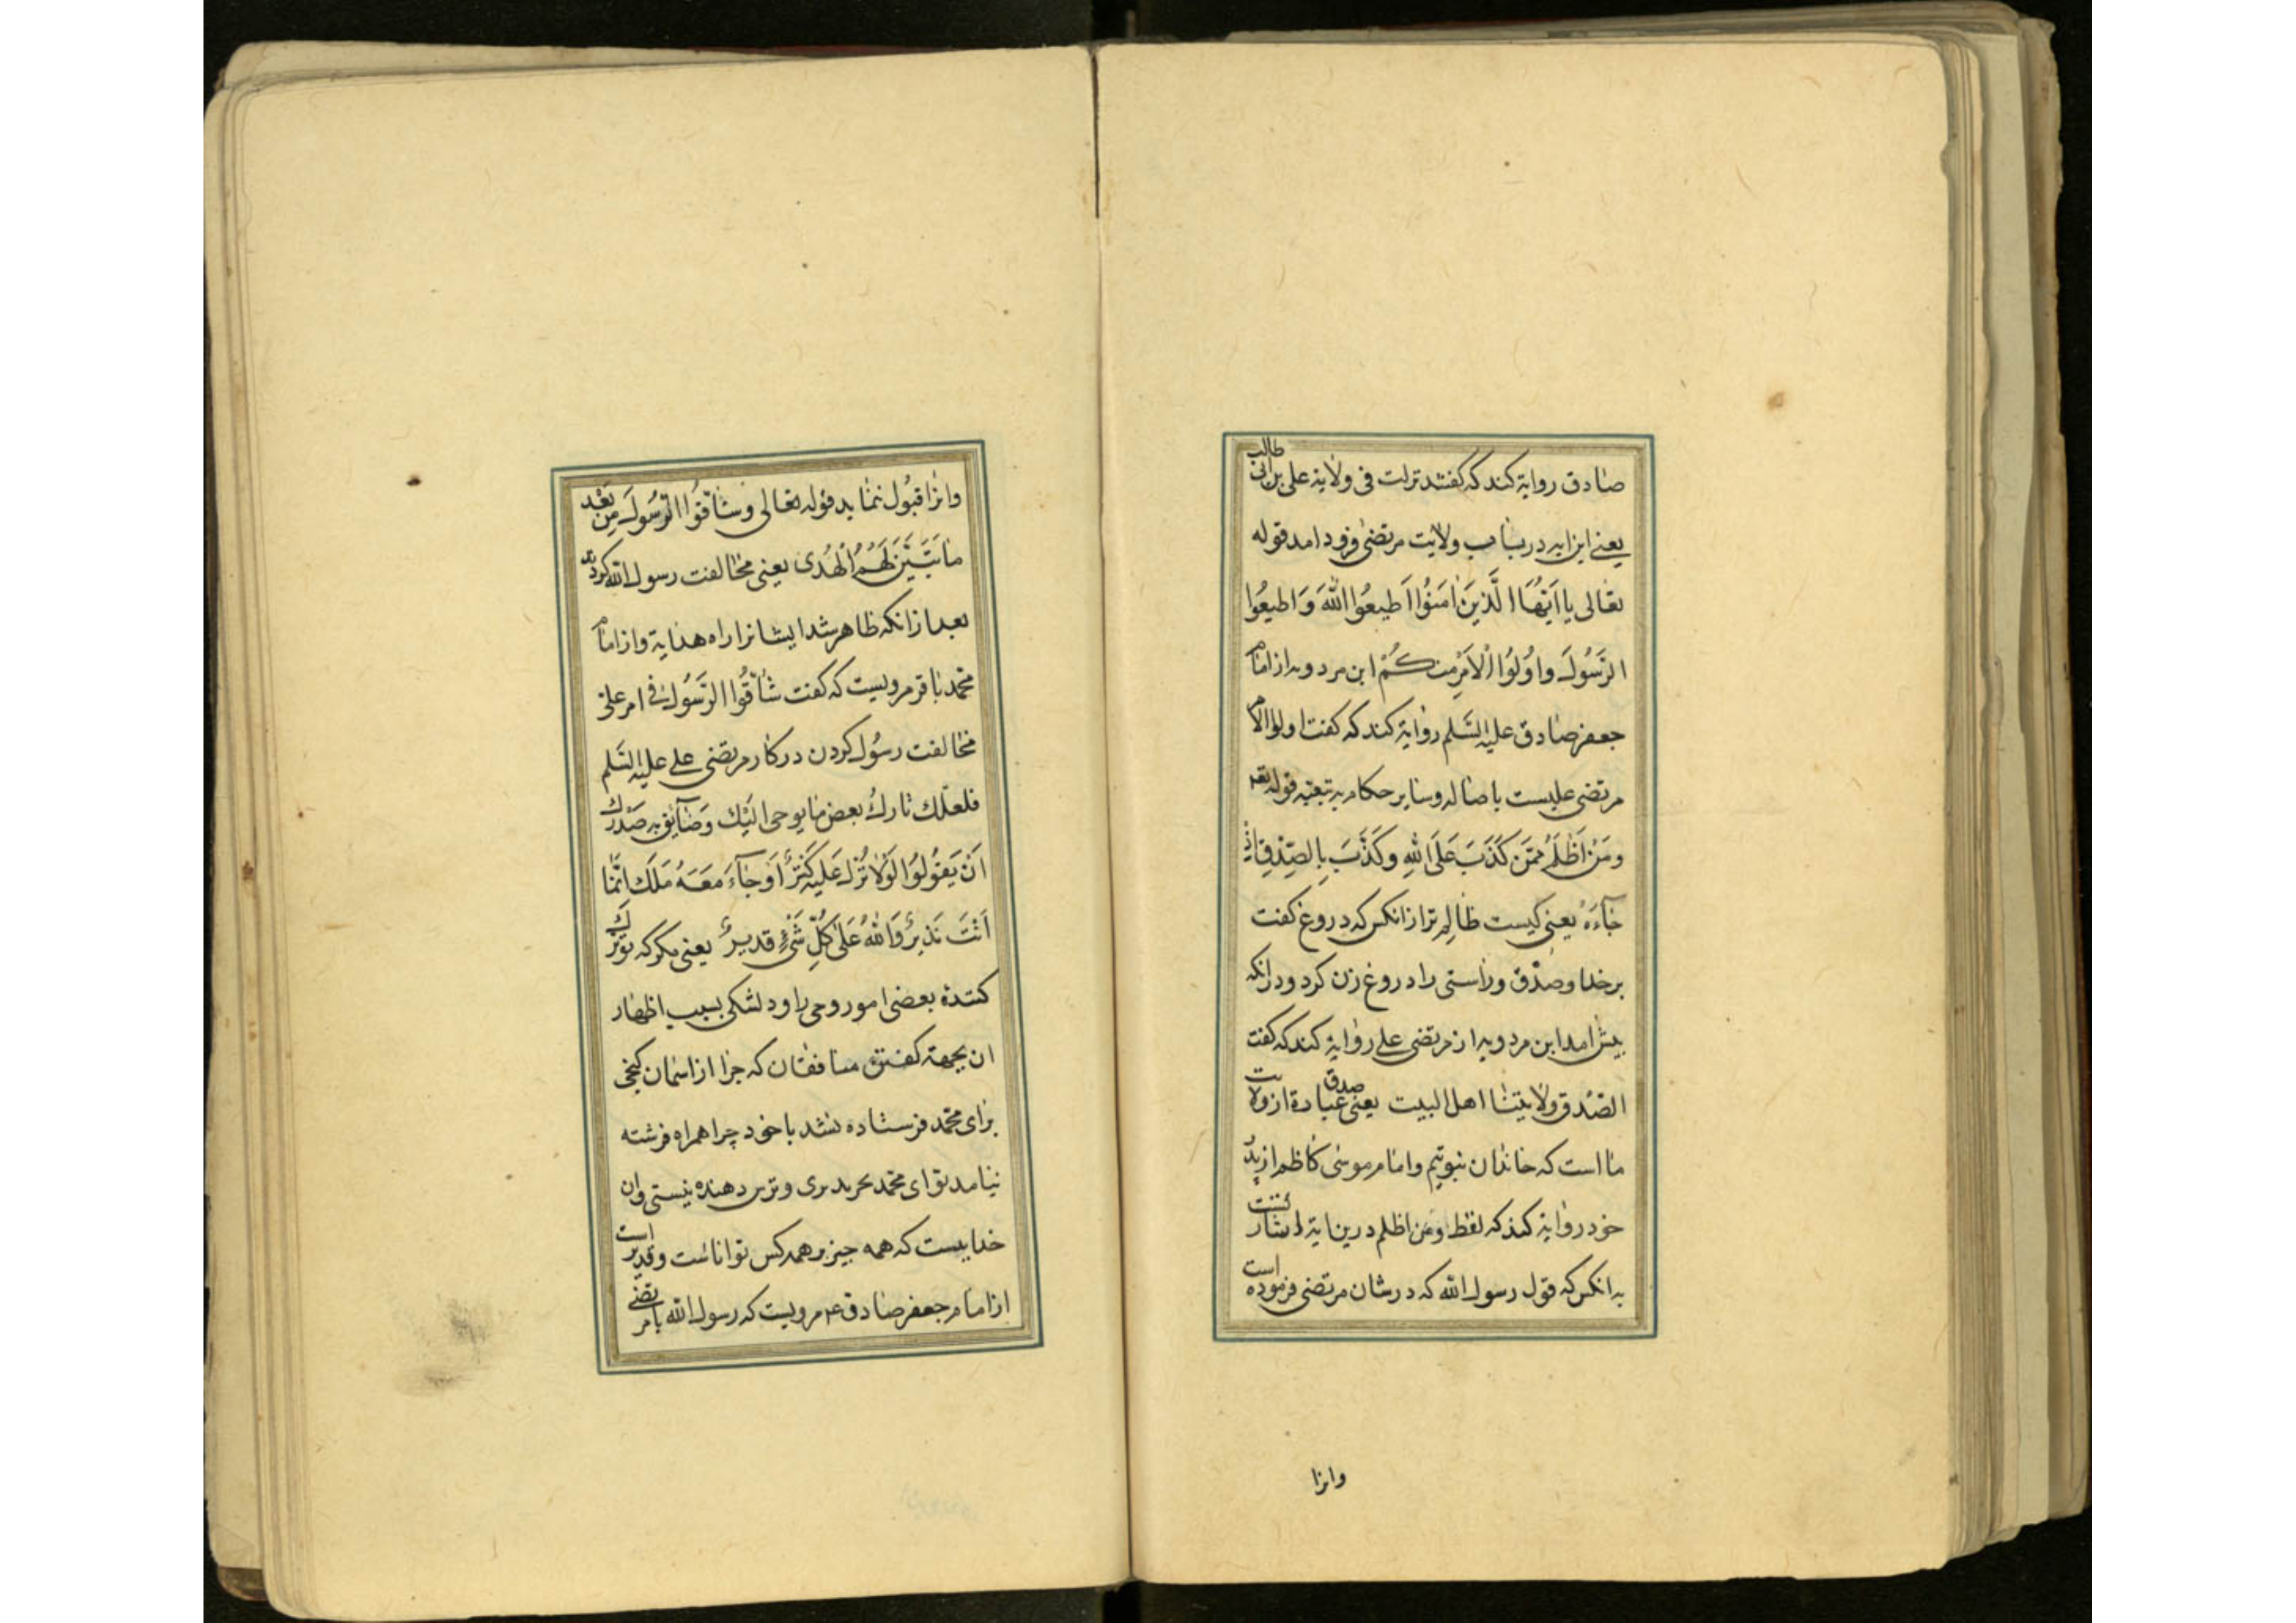 صادق روایة کند که گفتند نزلت فی ولایة علی بن ابی طالب
یعنے این ایه در باب ولایت مرتضی فرود امد قوله
تعالی یا اَیُّهَا الَّذینَ اٰمَنُوا اَطیعُوا اللّٰهَ وَ اَطیعُوا
الرَّسُولَ وا وُلوُا الْاَمْرِ منکُمْ ابن مردویه از امام
جعفر صادق علیه السَّلم روایة کند که گفت اولوا الامر
مرتضی علیست باصاله وسایر حکام به تبعیه قوله تعه
ومَنْ اَظْلَمُ مِمَّن کَذَبَ عَلَی اللهِ وکَذَّبَ بِالصِّدْقِ اِذْ
جآءَهُ یعنی کیست ظالم تر از انکس که دروغ کفت
بر خدا وصدّق وراستی را دروغ زن کرد ودرانکه
پیش امد ابن مردویه از مرتضی علی روایة کند که گفت
الصّدق ولایتنا اهل البیت یعنی صدق عبادة از ولایت
ما است که خاندان نبوتیم وامام موسی کاظم از پدر
خود روایة کند که لفظ ومن اظلم درین ایة اشارتست
به انکس که قول رسول الله که در شان مرتضی فرموده است
وانرا
وانرا قبول ننماید قوله تعالی وشاقّوُا الرّسُولَ مِن بَعْد
ما تَبَیَّنَ لَهُمُ الْهُدی یعنی مخالفت رسول الله کردند
بعد از انکه ظاهر شد ایشانرا راه هدایة واز امام
محمد باقر مرویست که کفت شاقُّوا الرَّسُولَ فی امر علی
مخالفت رسُول کردن در کار مرتضی علی علیه السَّلم
فلعلّک تارکُ بعض ما یوحی الَیْکَ وَضآئِق به صَدْرُک
اَنْ یَقُولُوا لَوْلا نُزِلَ عَلَیهِ کَنْزٌ اَوْ جآءَ مَعَهُ مَلَکٌ اِنَّما
اَنْتَ نَذیرٌ وَاللهُ عَلی کُلِّ شَیْءٍ قدیرٌ یعنی مکر که تو ترک
کننده بعضی امور وحی را ودلتنکی بسبب اظهار
ان بجهة کفتن منافقان که چرا از اسمان کنجی
برای محمّد فرستاده نشد یا خود چرا همراه فرشته
نیامد تو ای محمّد بحریدبری وترس دهنده نیستی وان
خداییست که همه چیز بر همه کس تواناست وقدیر است
از امام جعفر صادق ع مرویست که رسول الله با مرتضی